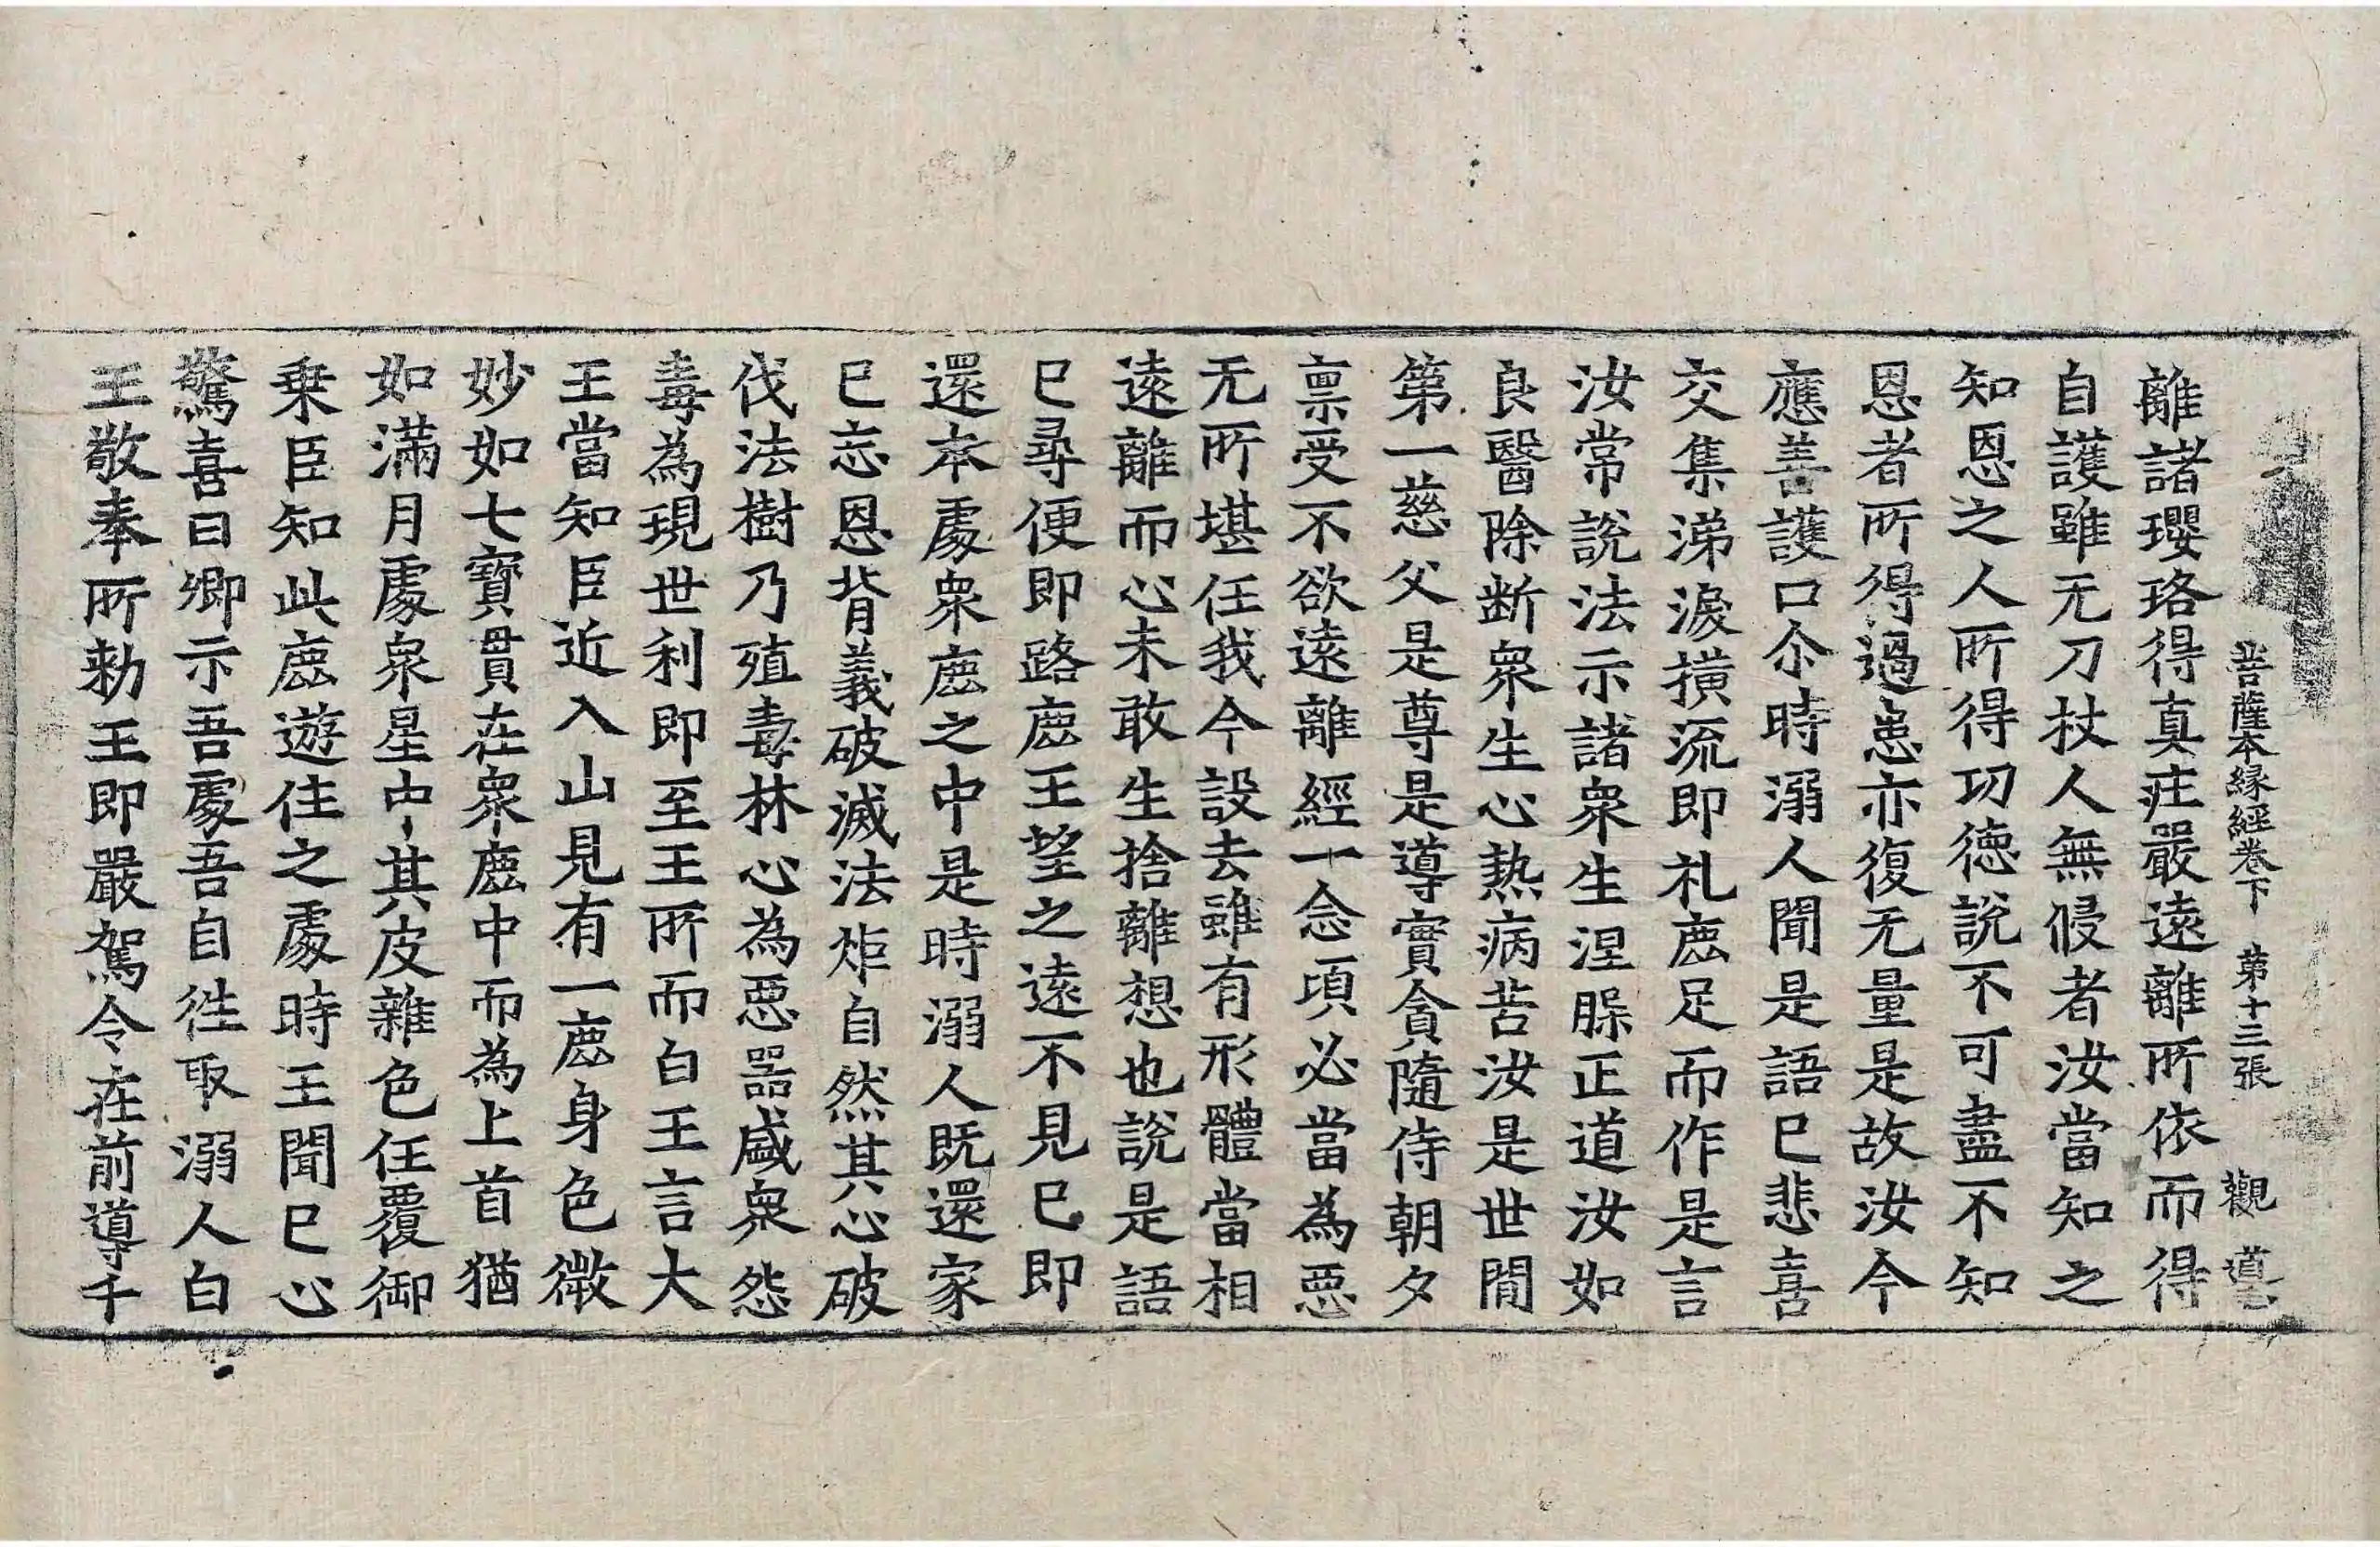 菩薩本縁經卷下 第十三張 觀 導
離諸瓔珞得真庄嚴遠離所依而得
自護雖无刀杖人無侵者汝當知之
知恩之人所得功徳說不可盡不知
恩者所得過患亦復无量是故汝今
應善護口尒時溺人聞是語已悲喜
交集涕淚橫流即礼鹿足而作是言
汝常說法示諸衆生涅槃正道汝如
良醫除断衆生心熱病苦汝是世間
第一慈父是尊是導實貪隨侍朝夕
禀受不欲逺離經一念頃必當為惡
无所堪任我今設去雖有形體當相
逺離而心未敢生捨離想也說是語
已尋便即路鹿王望之逺不見已即
還本處衆鹿之中是時溺人既還家
已忘恩背義破滅法炬自然其心破
伐法樹乃殖毒林心為惡器盛衆怨
毒為現世利即至王所而白王言大
王當知臣近入山見有一鹿身色微
妙如七寶貫在衆鹿中而為上首猶
如滿月處衆星中其皮雜色任覆御
乗臣知此鹿遊住之處時王聞已心
驚喜曰卿示吾處吾自徃取溺人白
王敬奉所勑王即嚴駕令在前導千